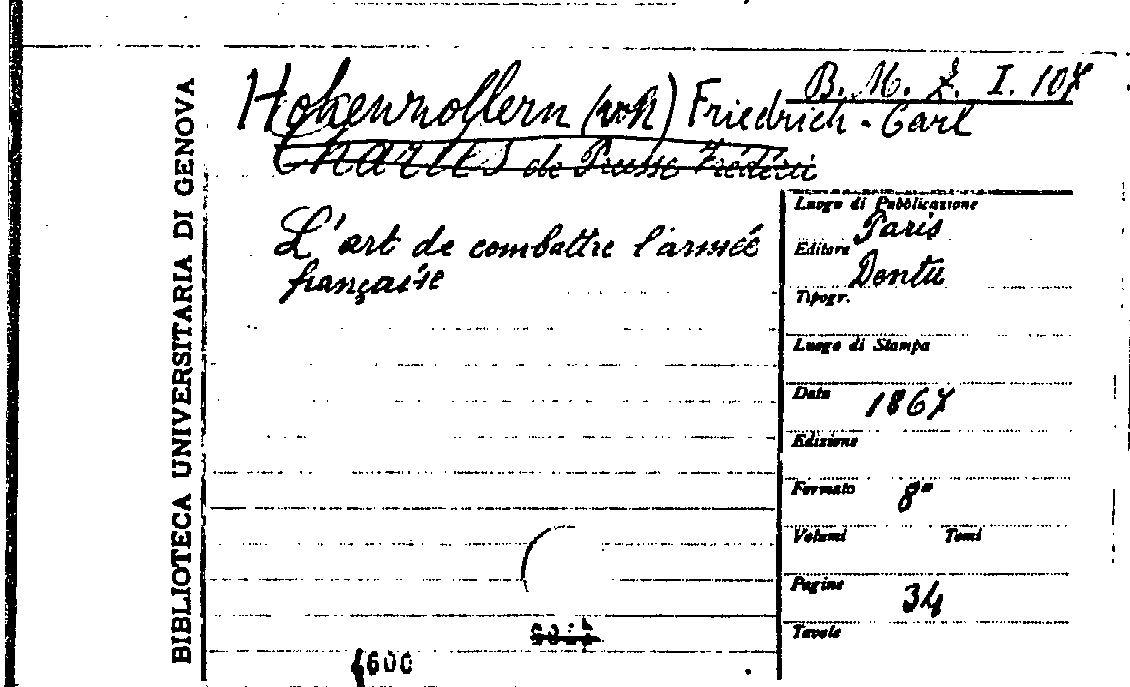 BIBLIOTECA UNIVERSITARIA DI GENOVA
B. M. Z. I. 107
Hohenzollern (von) Friedrich-Carl
Charles de Prusse Frédéric
L'art de combattre l'armée
française
Luogo di Pubblicazione
Paris
Editore Dentu
Tipogr.
Luogo di Stampa
Data 1867
Edizione
Formato 8°
Volumi Tomi
Pagine 34
Tavole
600